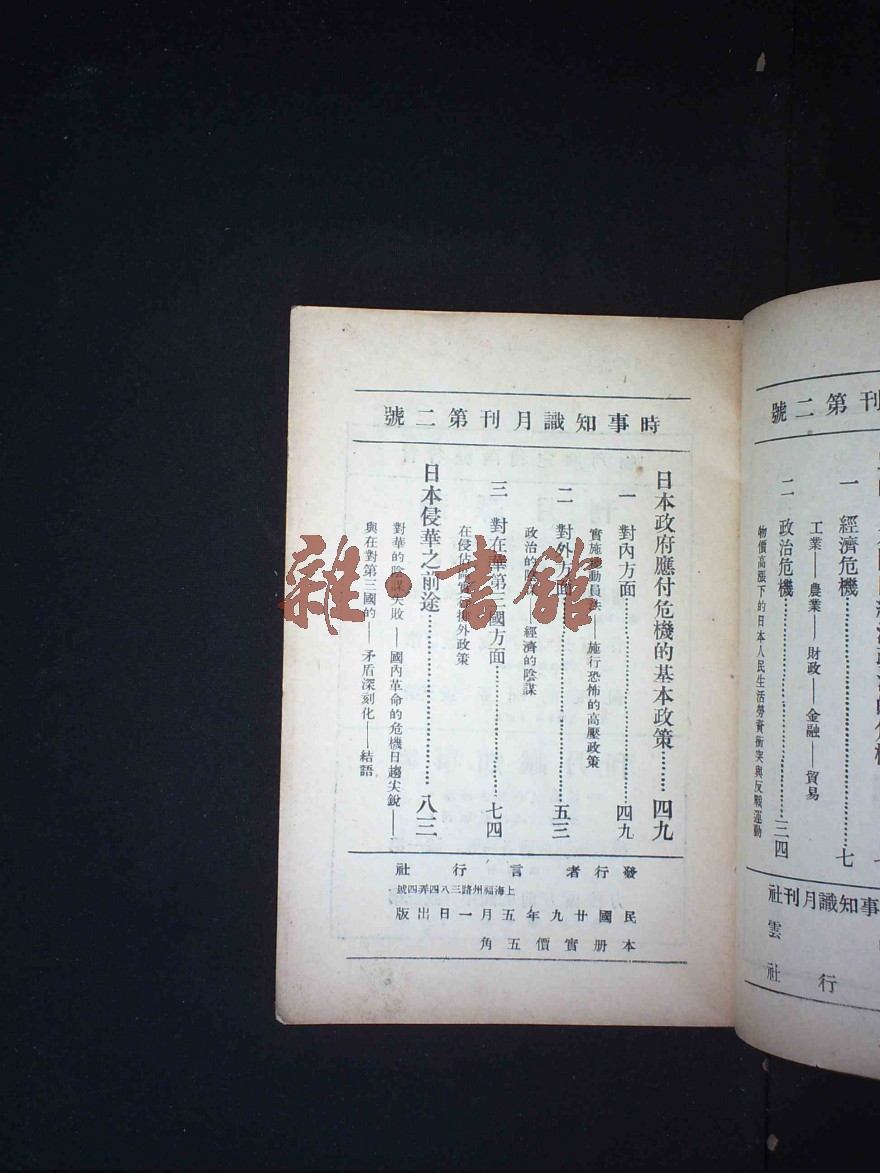 號二第刊月識知事時
日本政府應付危機的基本政策……四九
一 對內方面……四九
實施 動員法——施行恐怖的高壓政策
二 對外方面……五三
政治的陰謀——經濟的陰謀
三 對在華第三國方面……七四
在侵佔 排外政策
日本侵華之前途……八三
對華的陰謀失敗——國內革命的危機日趨尖銳——
與在對第三國的——矛盾深刻化——結語
社行言者行發
上海福州路三八四弄四號
版出日一月五年九廿國民
角五價實册本
號二第刊
一 經濟危機……七
工業——農業——財政——金融——貿易
二 政治危機……三四
物價高漲下的日本人民生活勞資衝突與反戰運動
社刊月識知事
雲
社行
雜·書館